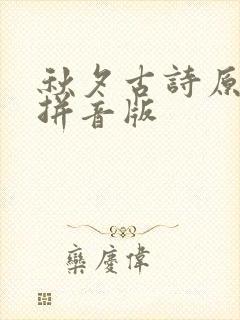 秋夕古詩原
拼音版
欒慶偉